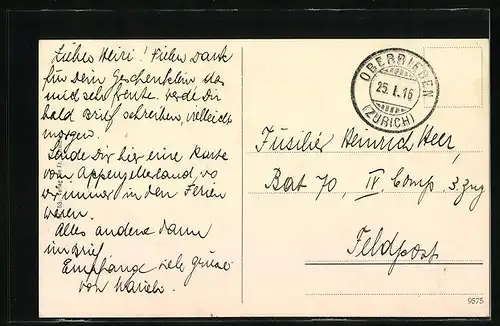 Liebes Heiri! Vielen Dank
für Dein Geschenklein das
mich sehr freute. werde Dir
bald Brief schreiben, vielleicht
morgen.
Sende Dir hier eine Karte
von Appenzellerland, wo
wir immer in den Ferien
waren.
Alles andere dann
im Brief.
Empfange viele Grüsse
von
OBERRIEDEN
25. I. 16
(ZÜRICH)
Füsilier Heinrich Heer,
Bat 70, IV. Comp. 3. Zug
Feldpost
9575